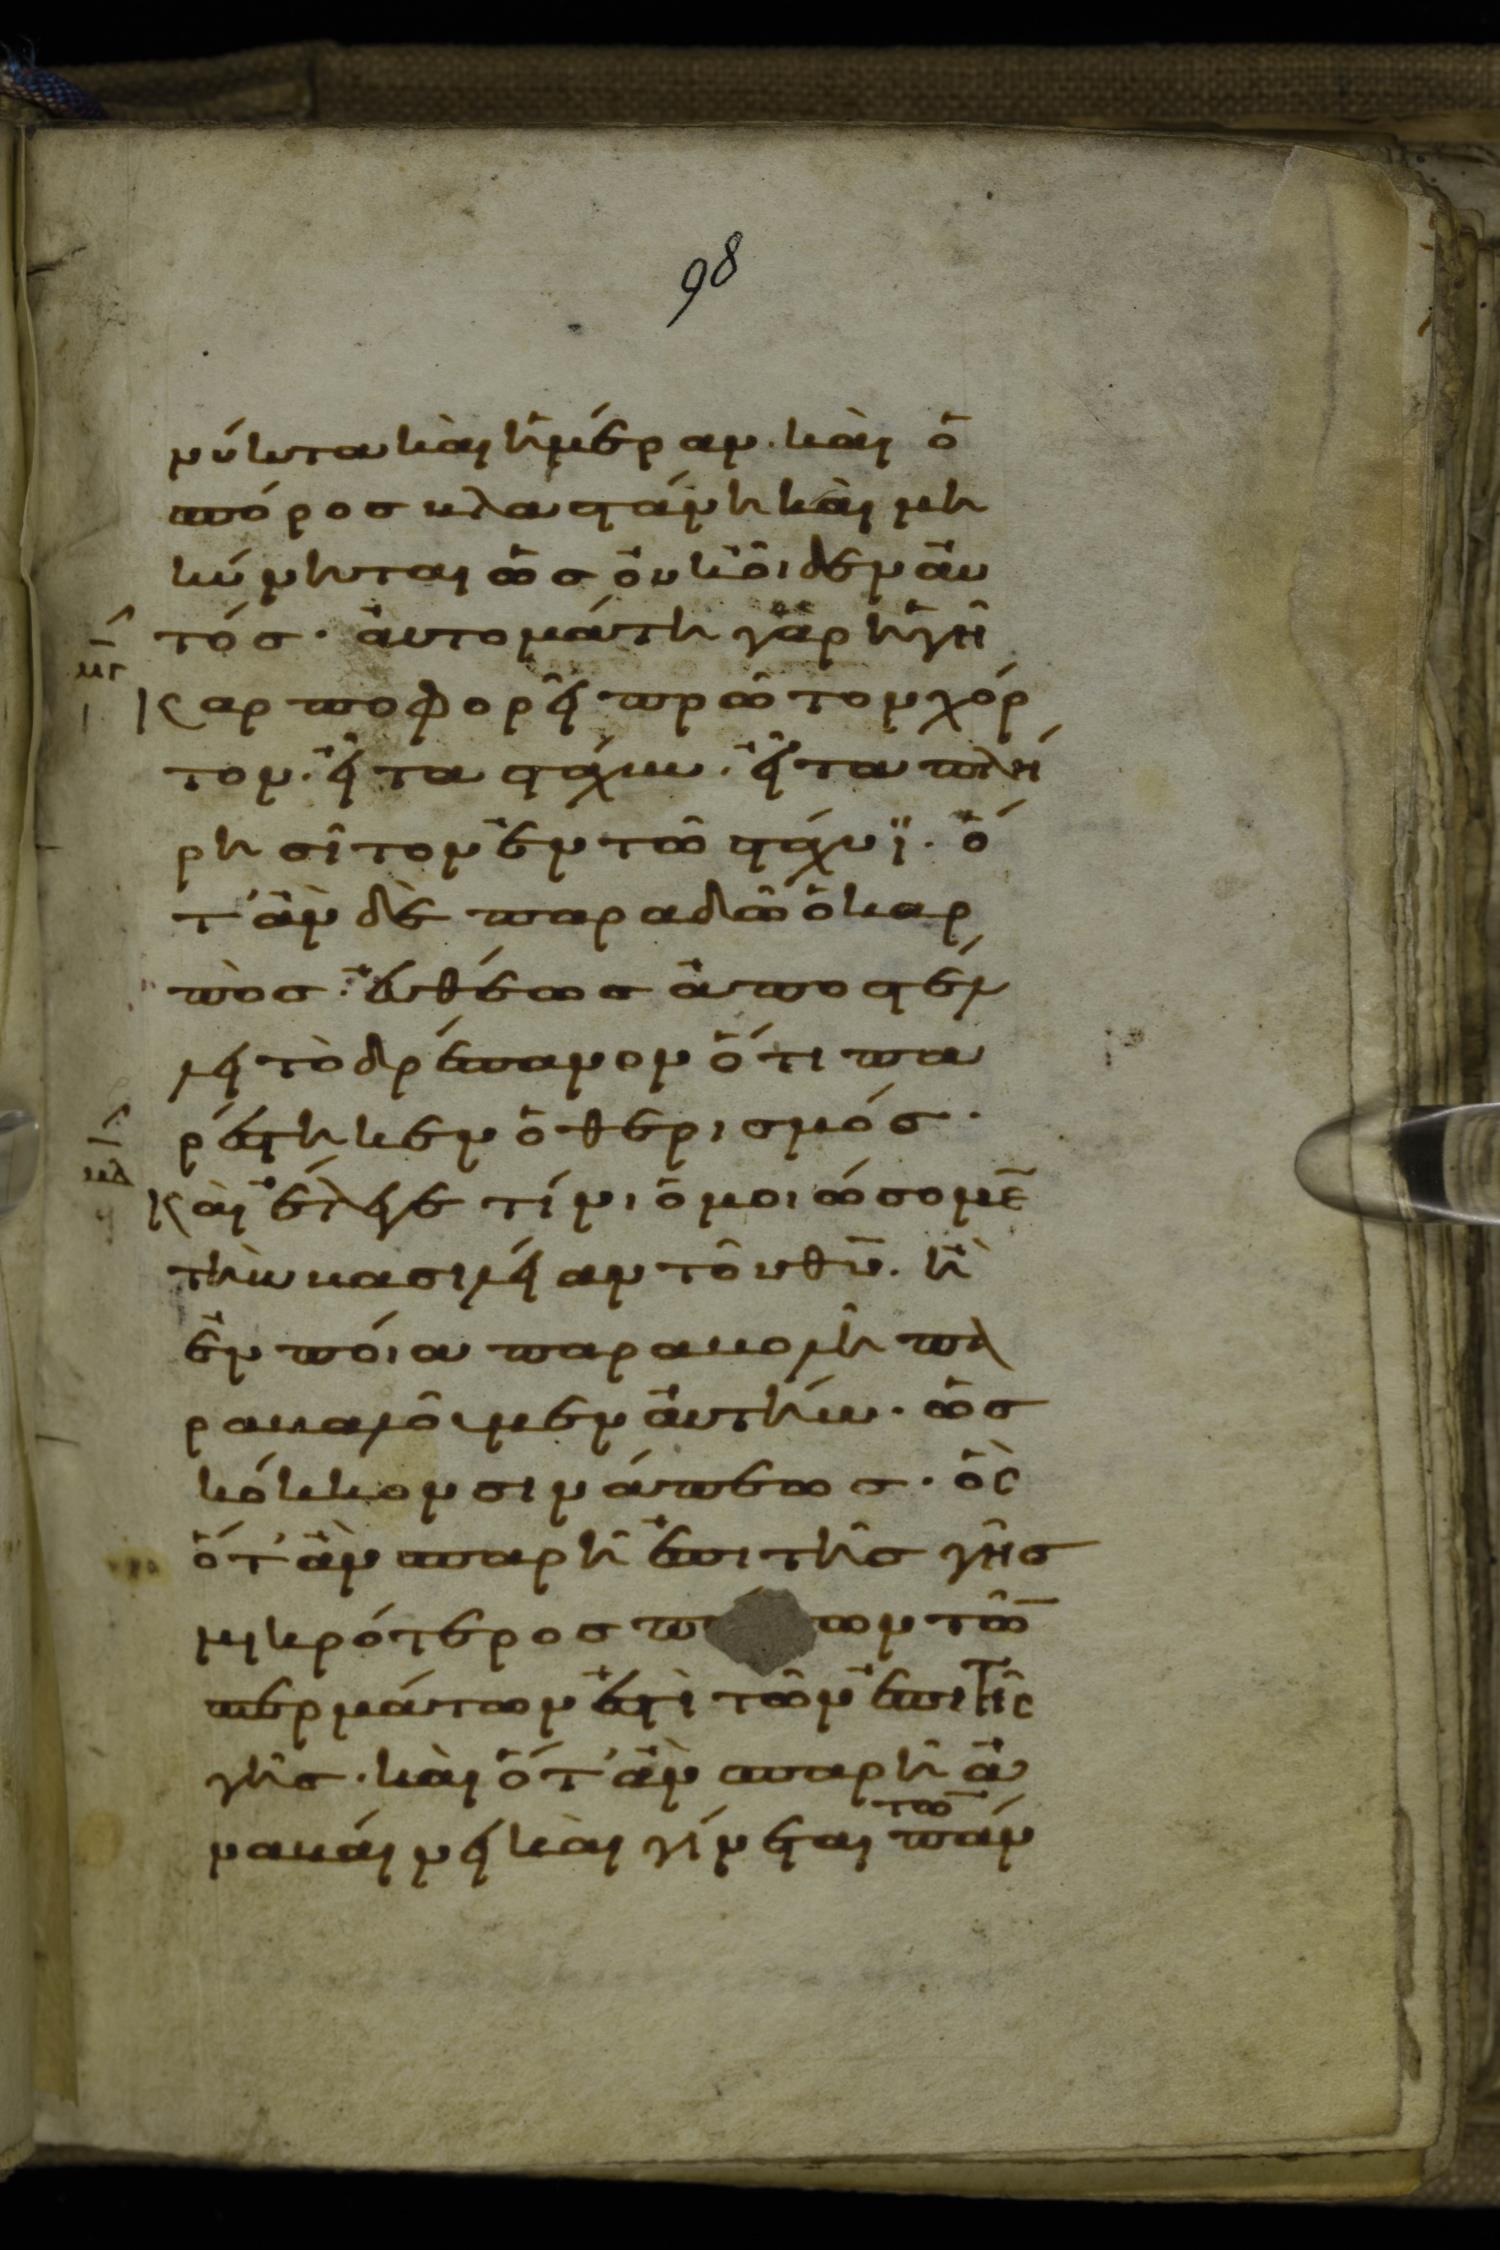 98
νύκτα καὶ ἡμέραν· καὶ ὁ
σπόρος βλαστάνη καὶ μη
κύνηται ὡς οὐκ οἶδεν αὐ
τός· αὐτομάτη γὰρ ἡ γῆ
μγ
Καρποφορεῖ πρῶτον χόρ
τον· εἶτα στάχυν· εἶτα πλή
ρη σῖτον ἐν τῶ στάχυϊ· ὅ
τ' ἂν δὲ παραδῶ ὁ καρ
πὸς· εὐθέως ἀποστέλ
λει τὸ δρέπανον ὅτι πα
ρέστηκεν ὁ θερισμός·
μδ
Καὶ ἔλεγε τίνι ὁμοιώσομε̄
τὴν βασιλείαν τοῦ θυ̅· ἢ
ἐν ποία παραβολῆ πα
ραβαλοῦμεν αὐτήν· ὡς
κόκκον σινάπεως· ὃς
ὅτ' ἂν σπαρῆ ἐπι τῆς γῆς
μικρότερος π των τῶ̄
σπερμάτων ἐστὶ τῶν ἐπι τῆς
γῆς· καὶ ὅτ' ἂν σπαρῆ ἀ
ναβαίνει καὶ γίνεται πάν
τω̄